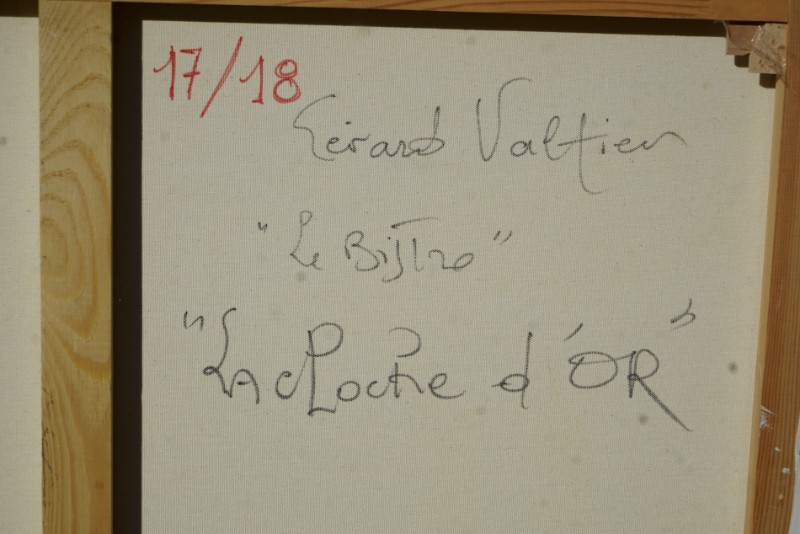 17/18
Gérard Valtier
"Le Bistro"
"LA cLoche d'OR"